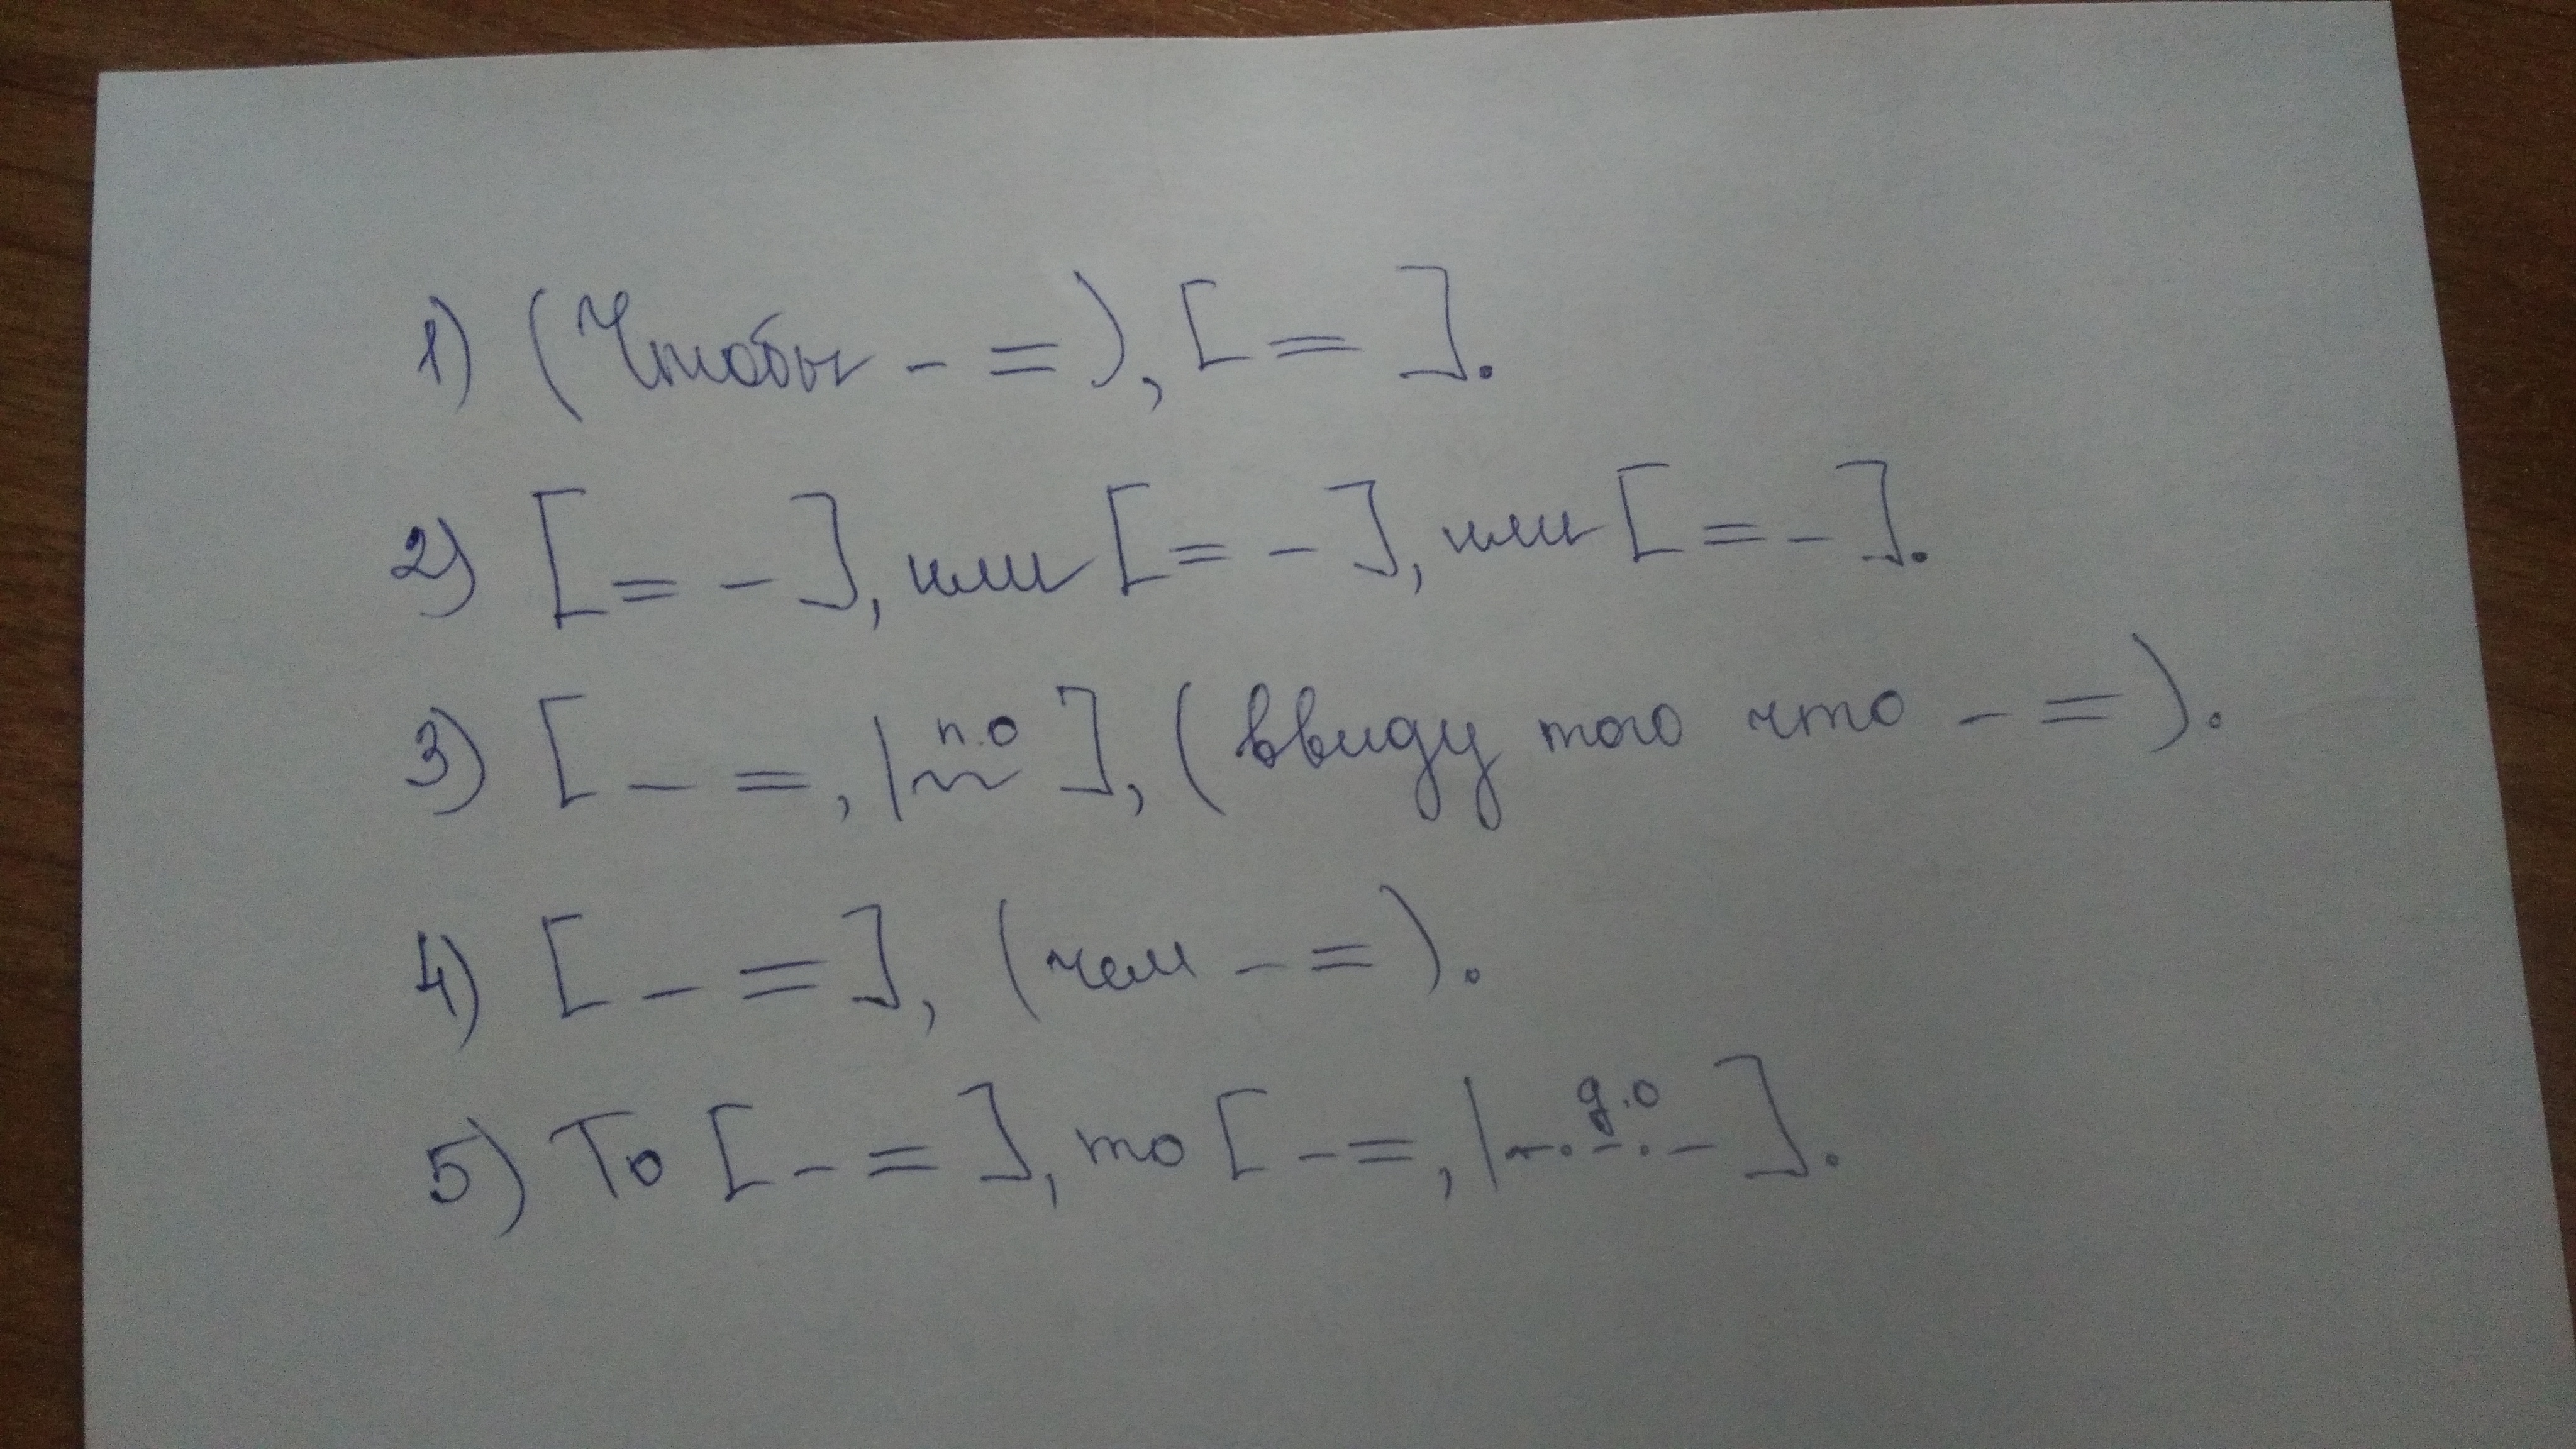 1) (Чтобы - =), [ = ].
2) [ = - ], или [ = - ], или [ = - ].
3) [ - = , |п.о ~~ ], (ввиду того что - = ).
4) [ - = ], (чем - = ).
5) То [ - = ], то [ - = , |д.о -.-.- ].